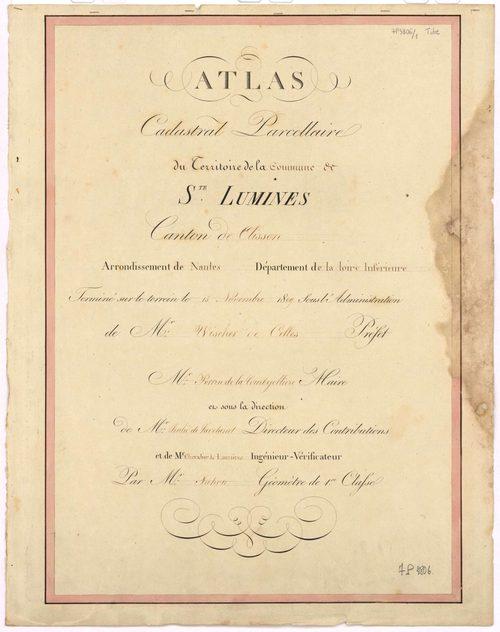 7P3806/1 Titre
ATLAS
Cadastral Parcellaire
du Territoire de la Commune de
Ste. LUMINES
Canton de Clisson
Arrondissement de Nantes Département de la Loire Inférieure
Terminé sur le terrein le 15 Novembre 1809 Sous l'Administration
de Mr. Wischer de Celles Préfet
Mr. Perrin de la Courbejolliere Maire
et sous la direction
de Mr. Directeur des Contributions
et de Mr Ingénieur-Vérificateur
Par Mr. Géomètre de 1re Classe
7P 3806.